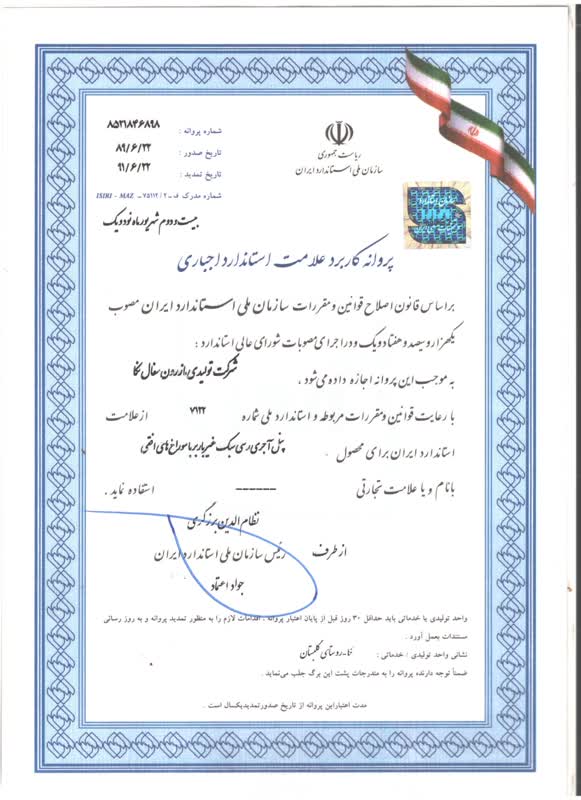 ریاست جمهوری
سازمان ملی استاندارد ایران
شماره پروانه : ۸۵۲۱۸۴۶۸۹۸
تاریخ صدور : ۸۹/۶/۲۲
تاریخ تمدید : ۹۱/۶/۲۲
شماره مدرک ف - ۲ / ۷۵۱۱۲ - ISIRI - MAZ
بیست و دوم شهریور ماه نود و یک
پروانه کاربرد علامت استاندارد اجباری
براساس قانون اصلاح قوانین و مقررات سازمان ملی استاندارد ایران مصوب
یکهزار و سیصد و هفتاد و یک و در اجرای مصوبات شورای عالی استاندارد :
شرکت تولیدی آذرون سفال نکا
به موجب این پروانه اجازه داده می شود ,
با رعایت قوانین و مقررات مربوطه و استاندارد ملی شماره ۷۱۲۲ از علامت
استاندارد ایران برای محصول پنل آجری رسی سبک غیر باربر با سوراخ های افقی
بانام و یا علامت تجارتی ------ استفاده نماید .
نظام الدین برزگری
از طرف رئیس سازمان ملی استاندارد ایران
جواد اعتماد
واحد تولیدی یا خدماتی باید حداقل ۳۰ روز قبل از پایان اعتبار پروانه ، اقدامات لازم را به منظور تمدید پروانه و به روز رسانی
مستندات بعمل آورد .
نشانی واحد تولیدی / خدماتی : نکا-روستای گلبستان
ضمناً توجه دارنده پروانه را به مندرجات پشت این برگ جلب می‌نماید .
مدت اعتباراین پروانه از تاریخ صدورتمدیدیکسال است .